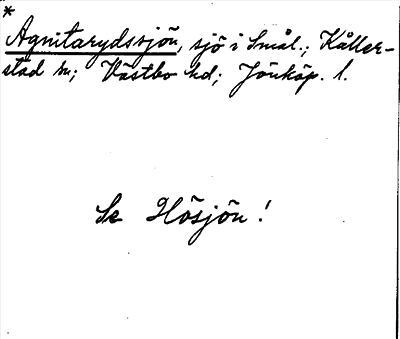 *
Agnitarydssjön, sjö i Smål.; Kåller-
stad sn; Västbo hd; Jönköp. l.
Se Hösjön!